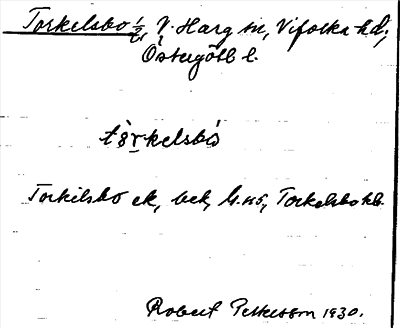 Torkelsbo ½, V. Harg sn, Vifolka hd,
Östergötl l.
tòrkelsbó
Torkilsbo ek, bek, h.us, Torkelsbo
Robert Petterson 1930.